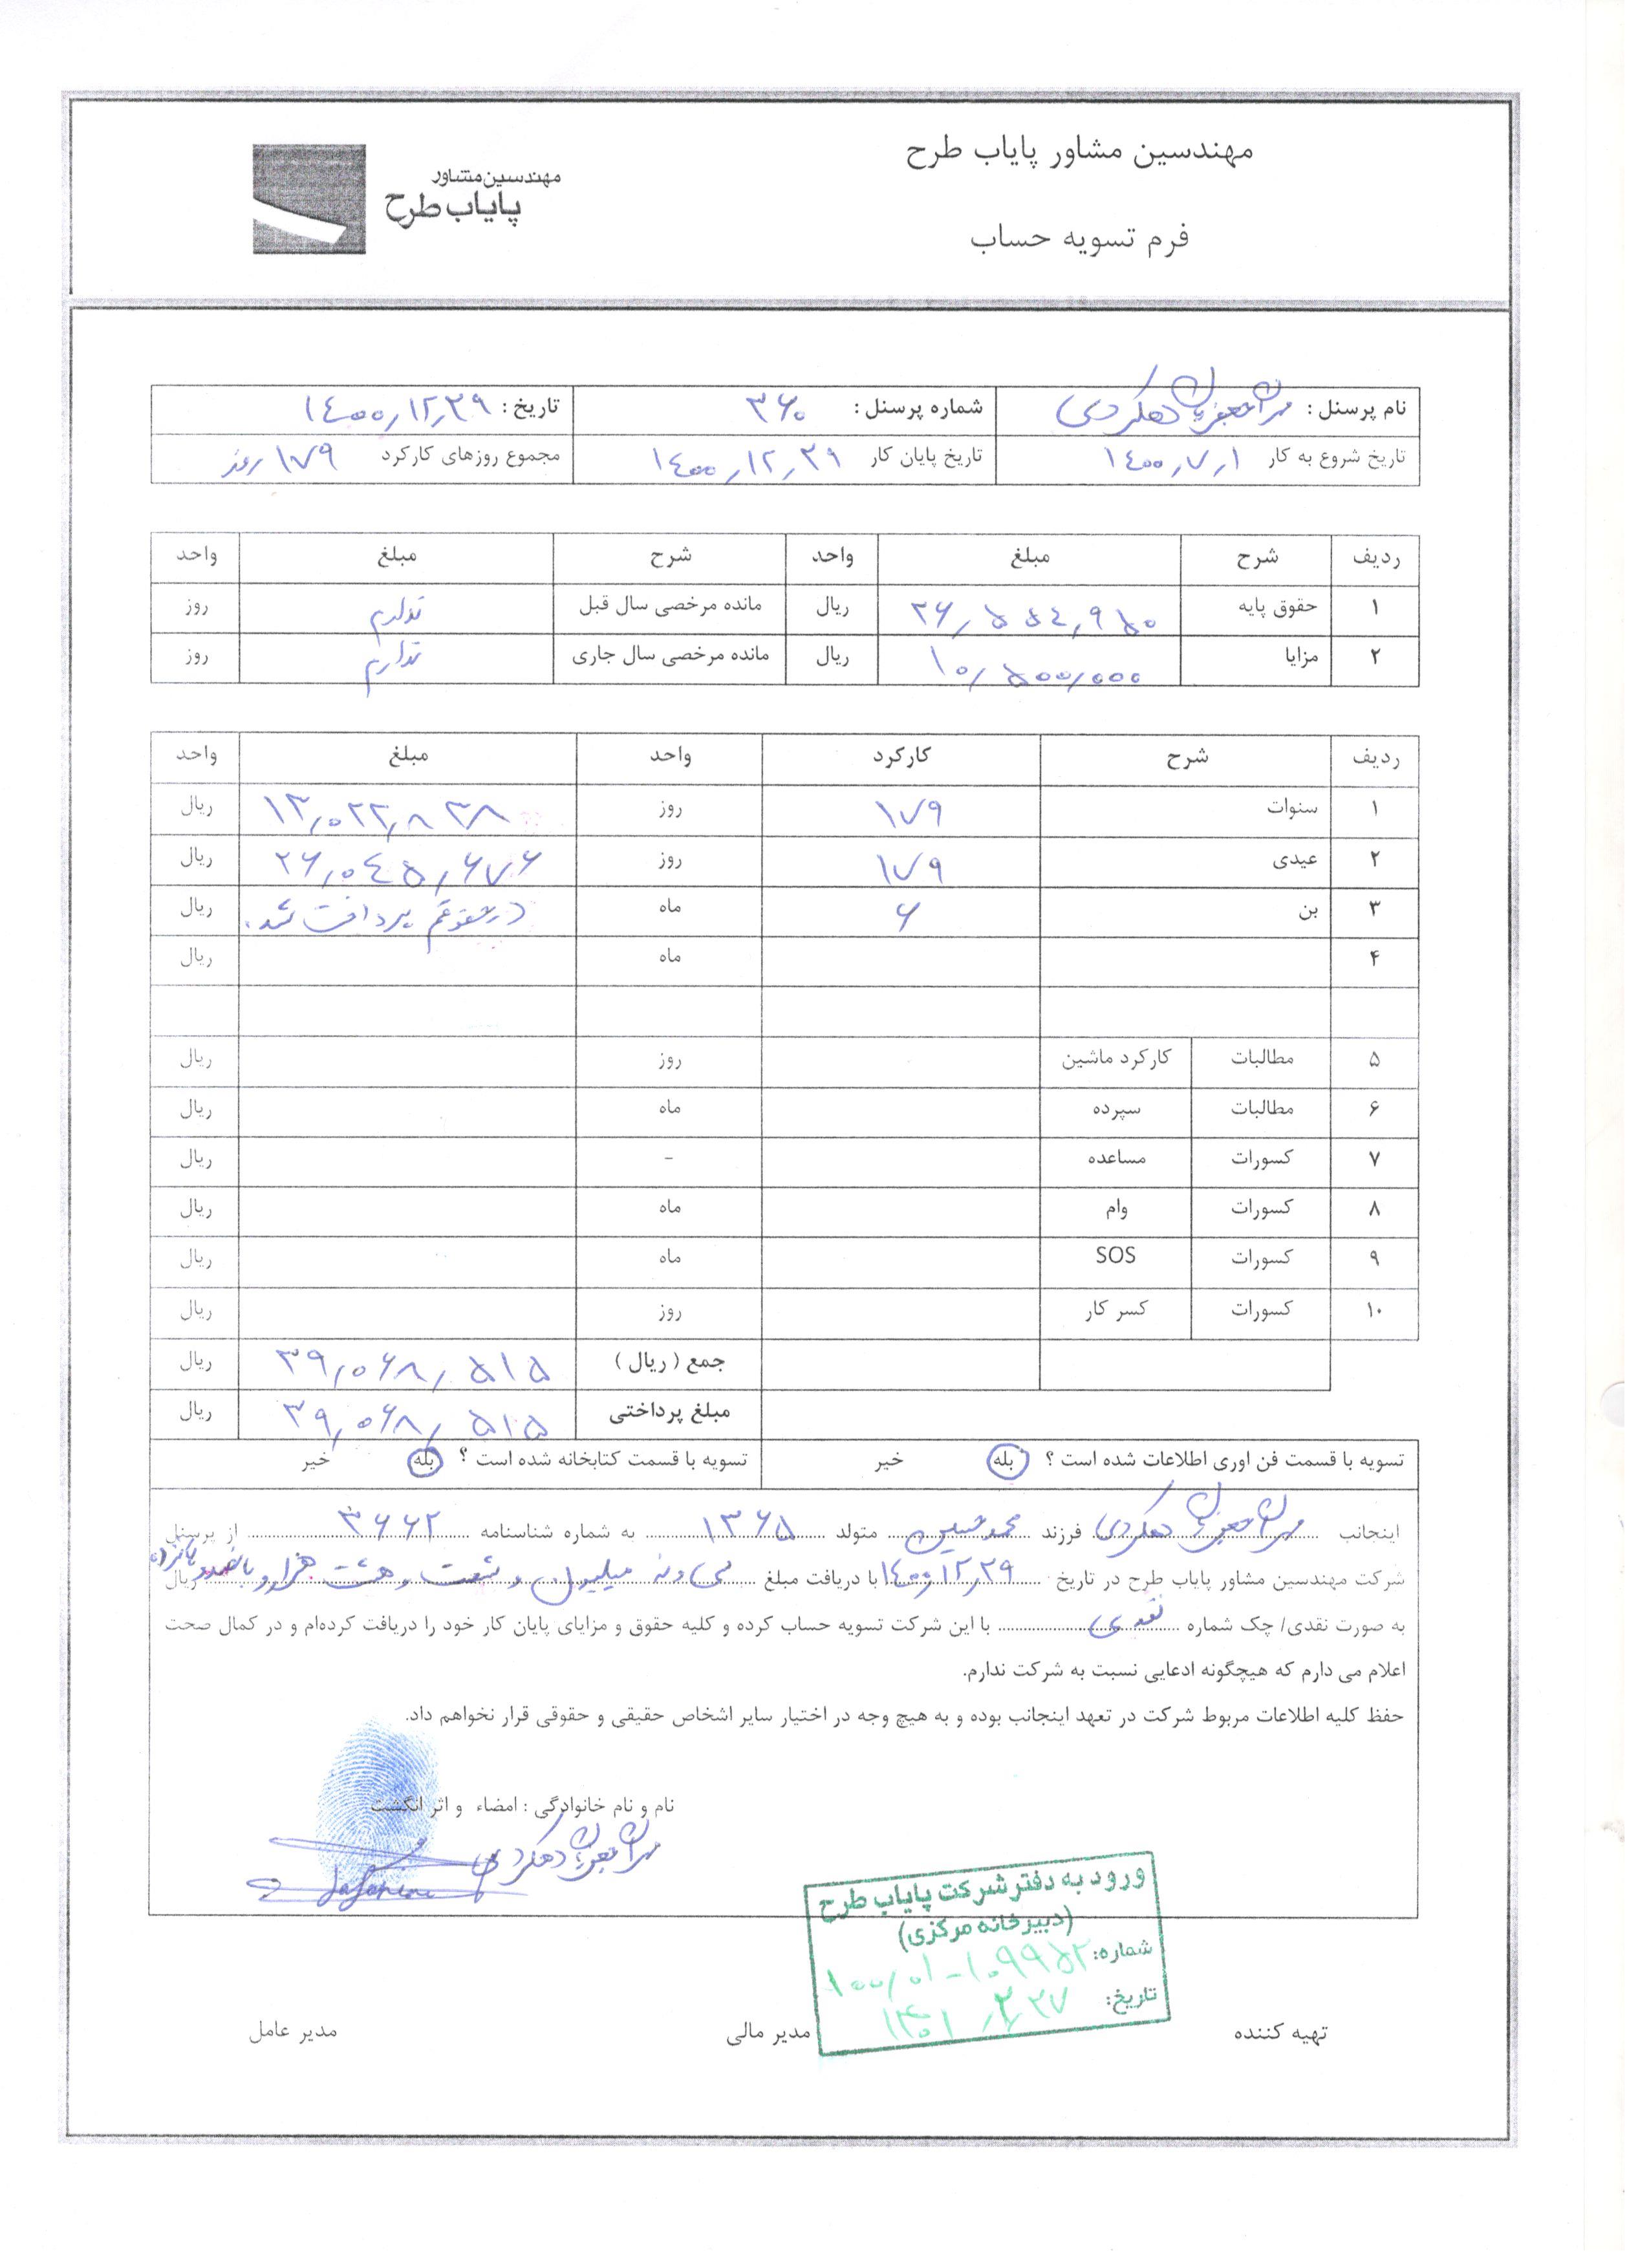 مهندسین مشاور پایاب طرح
مهندسین مشاور
پایاب طرح
فرم تسویه حساب
نام پرسنل : مهران جعفریان دهکردی شماره پرسنل : ۳۶۰ تاریخ : ۱۴۰۰٫۱۲٫۲۹
تاریخ شروع به کار ۱۴۰۰٫۷٫۱ تاریخ پایان کار ۱۴۰۰٫۱۲٫۲۹ مجموع روزهای کارکرد ۱۷۹ روز
ردیف شرح مبلغ واحد شرح مبلغ واحد
۱ حقوق پایه ۲۶٫۵۵۴٫۹۵۰ ریال مانده مرخصی سال قبل ندارم روز
۲ مزایا ۱۰٫۵۰۰٫۰۰۰ ریال مانده مرخصی سال جاری ندارم روز
ردیف شرح کارکرد واحد مبلغ واحد
۱ سنوات ۱۷۹ روز ۱۳٫۰۲۲٫۸۳۸ ریال
۲ عیدی ۱۷۹ روز ۲۶٫۰۴۵٫۶۷۶ ریال
۳ بن ۶ ماه در حقوقم پرداخت شد. ریال
۴ ماه ریال
۵ مطالبات کارکرد ماشین روز ریال
۶ مطالبات سپرده ماه ریال
۷ کسورات مساعده - ریال
۸ کسورات وام ماه ریال
۹ کسورات SOS ماه ریال
۱۰ کسورات کسر کار روز ریال
جمع ( ریال ) ۳۹٫۰۶۸٫۵۱۵ ریال
مبلغ پرداختی ۳۹٫۰۶۸٫۵۱۵ ریال
تسویه با قسمت فن اوری اطلاعات شده است ؟ بله خیر تسویه با قسمت کتابخانه شده است ؟ بله خیر
اینجانب مهران جعفریان دهکردی فرزند محمدحسین متولد ۱۳۶۵ به شماره شناسنامه ۳۶۶۲ از پرسنل
شرکت مهندسین مشاور پایاب طرح در تاریخ ۱۴۰۰٫۱۲٫۲۹ با دریافت مبلغ سی و نه میلیون و شصت و هشت هزار و پانصد و پانزده ریال
به صورت نقدی/ چک شماره نقدی با این شرکت تسویه حساب کرده و کلیه حقوق و مزایای پایان کار خود را دریافت کرده‌ام و در کمال صحت
اعلام می دارم که هیچگونه ادعایی نسبت به شرکت ندارم.
حفظ کلیه اطلاعات مربوط شرکت در تعهد اینجانب بوده و به هیچ وجه در اختیار سایر اشخاص حقیقی و حقوقی قرار نخواهم داد.
نام و نام خانوادگی : امضاء و اثر انگشت
مهران جعفریان دهکردی
ورود به دفتر شرکت پایاب طرح
(دبیرخانه مرکزی)
شماره: ۱۰۰٫۰۱-۱۰۹۹۵۲
تاریخ:
تهیه کننده مدیر مالی مدیر عامل